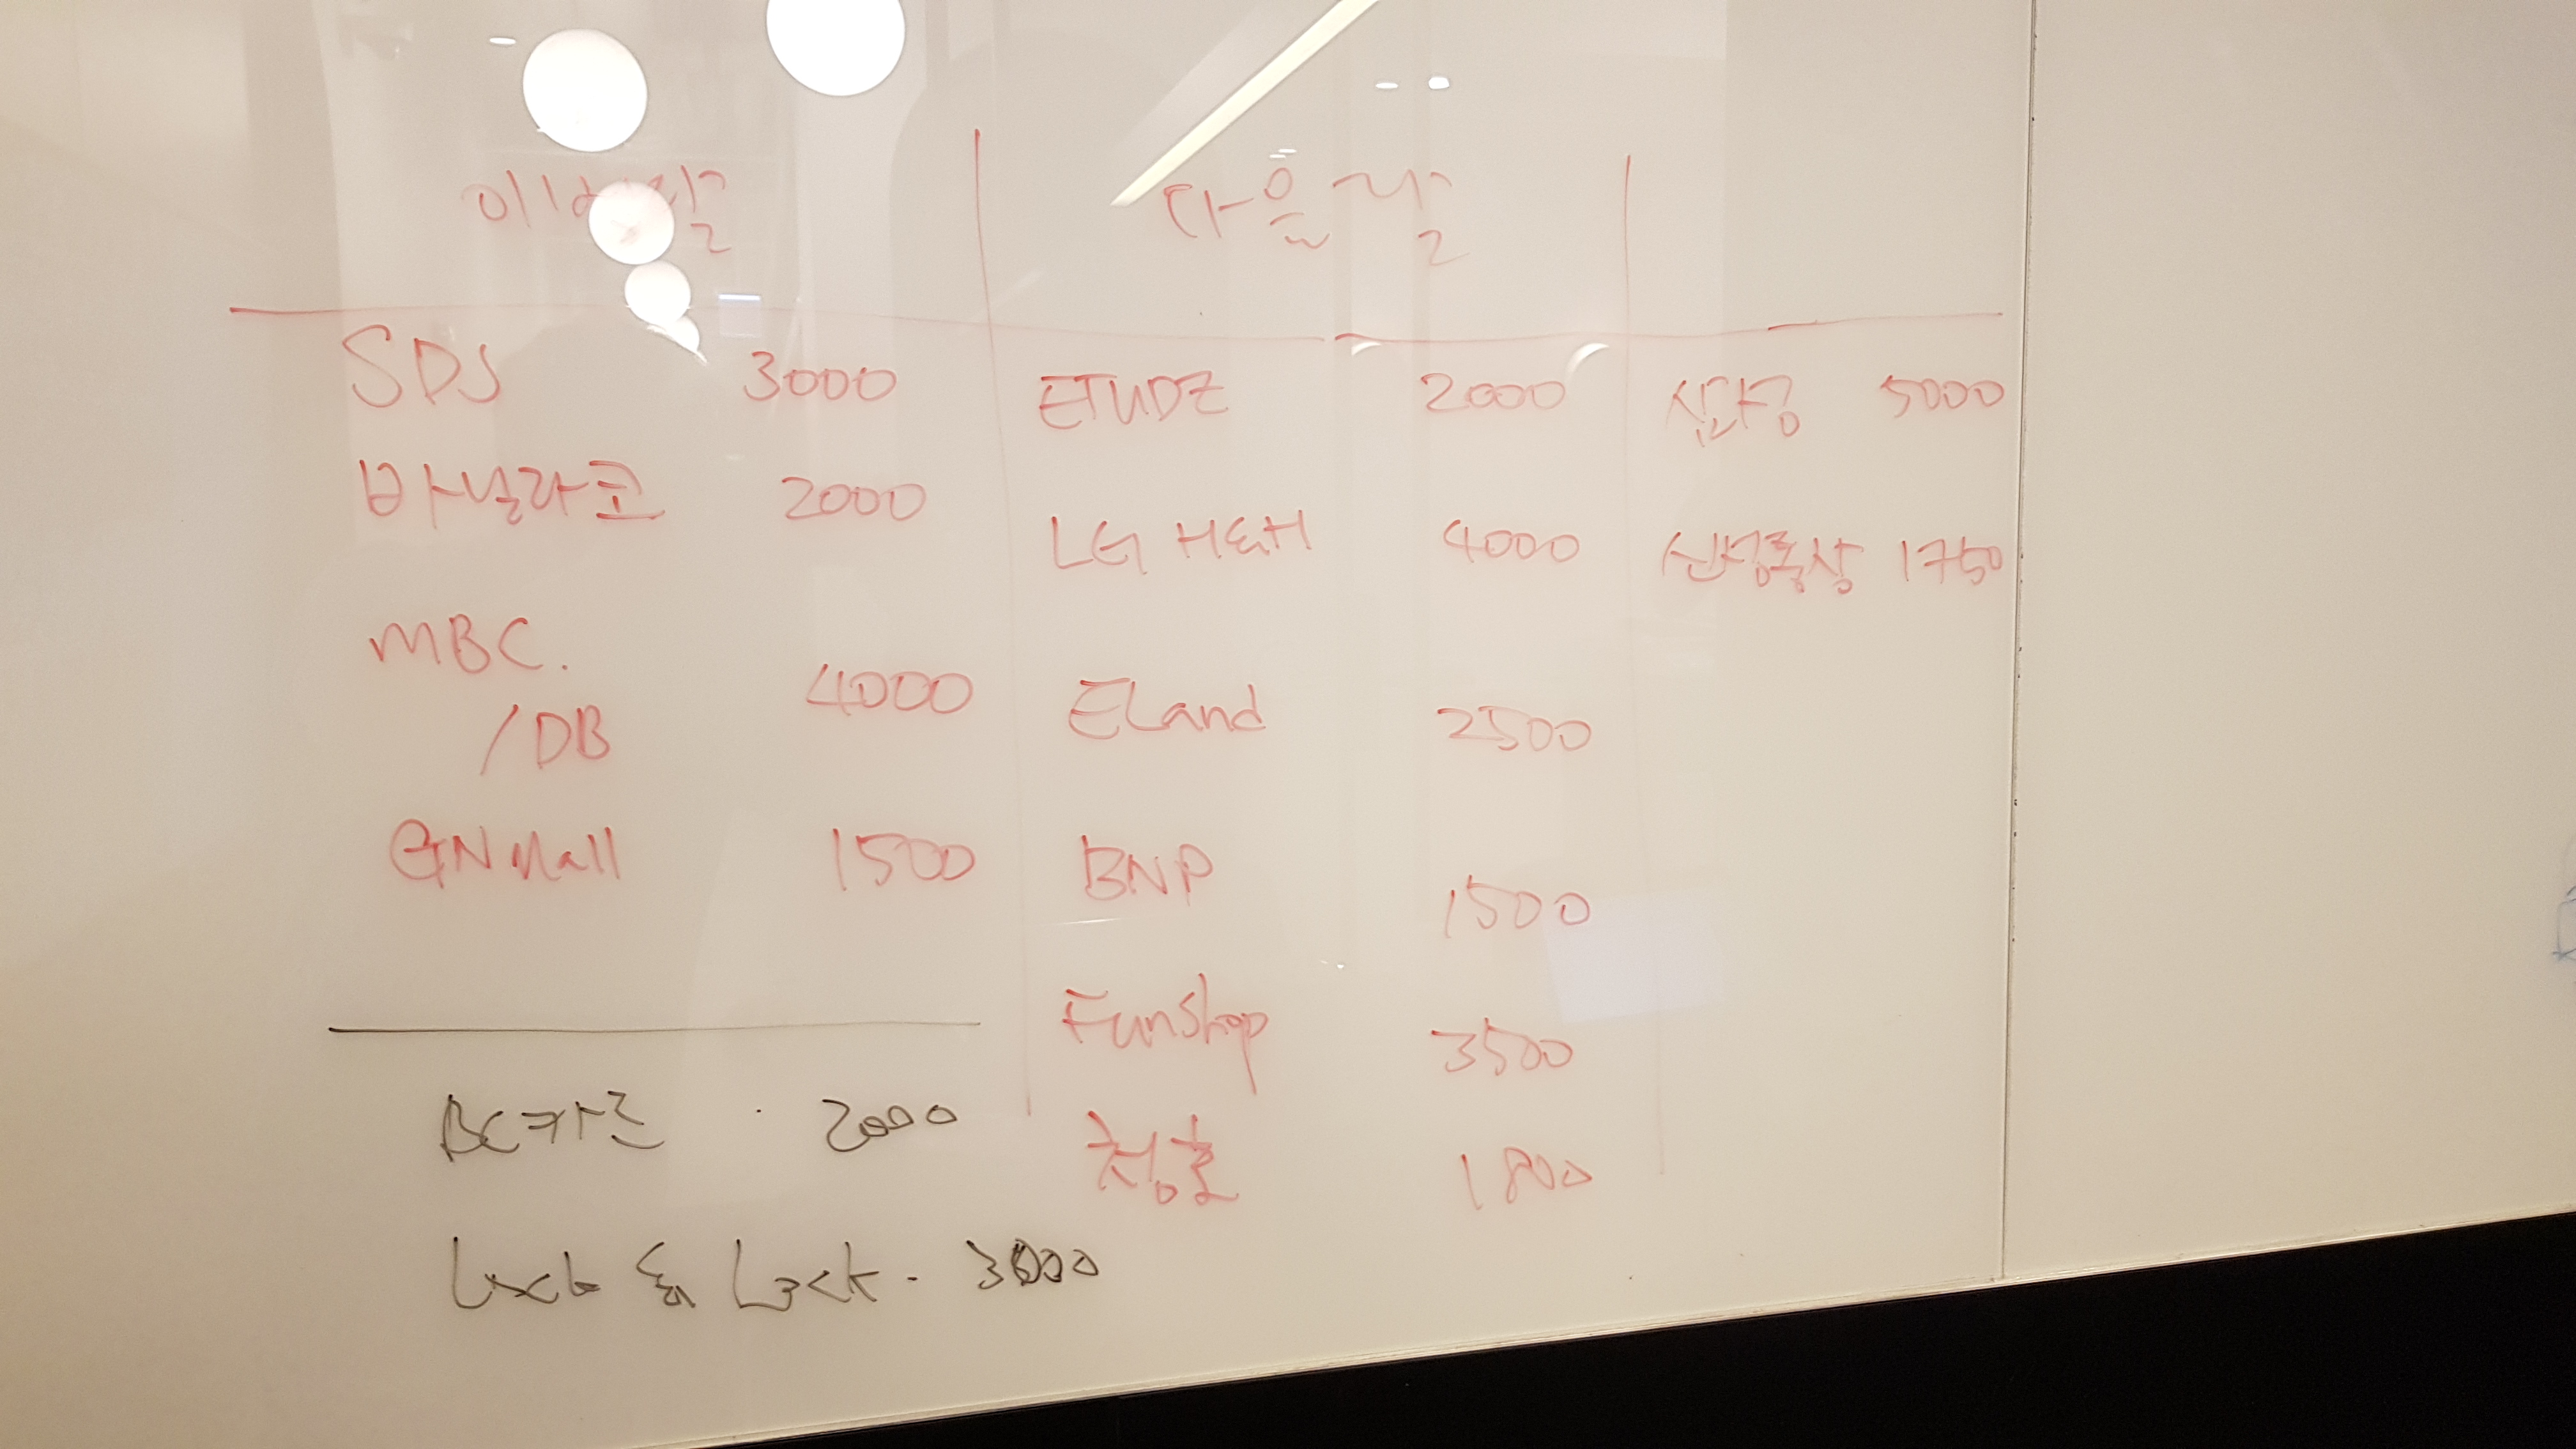 다음 달
SDS 3000 ETUDE 2000 삼성 5000
바닐라코 2000
LG H&H 4000 신성통상 1750
MBC.
/DB 4000 ELand 2500
GNMall 1500 BNP 1500
Funshop 3500
BC카드 2000 청호 1800
Lock & Lock. 3000